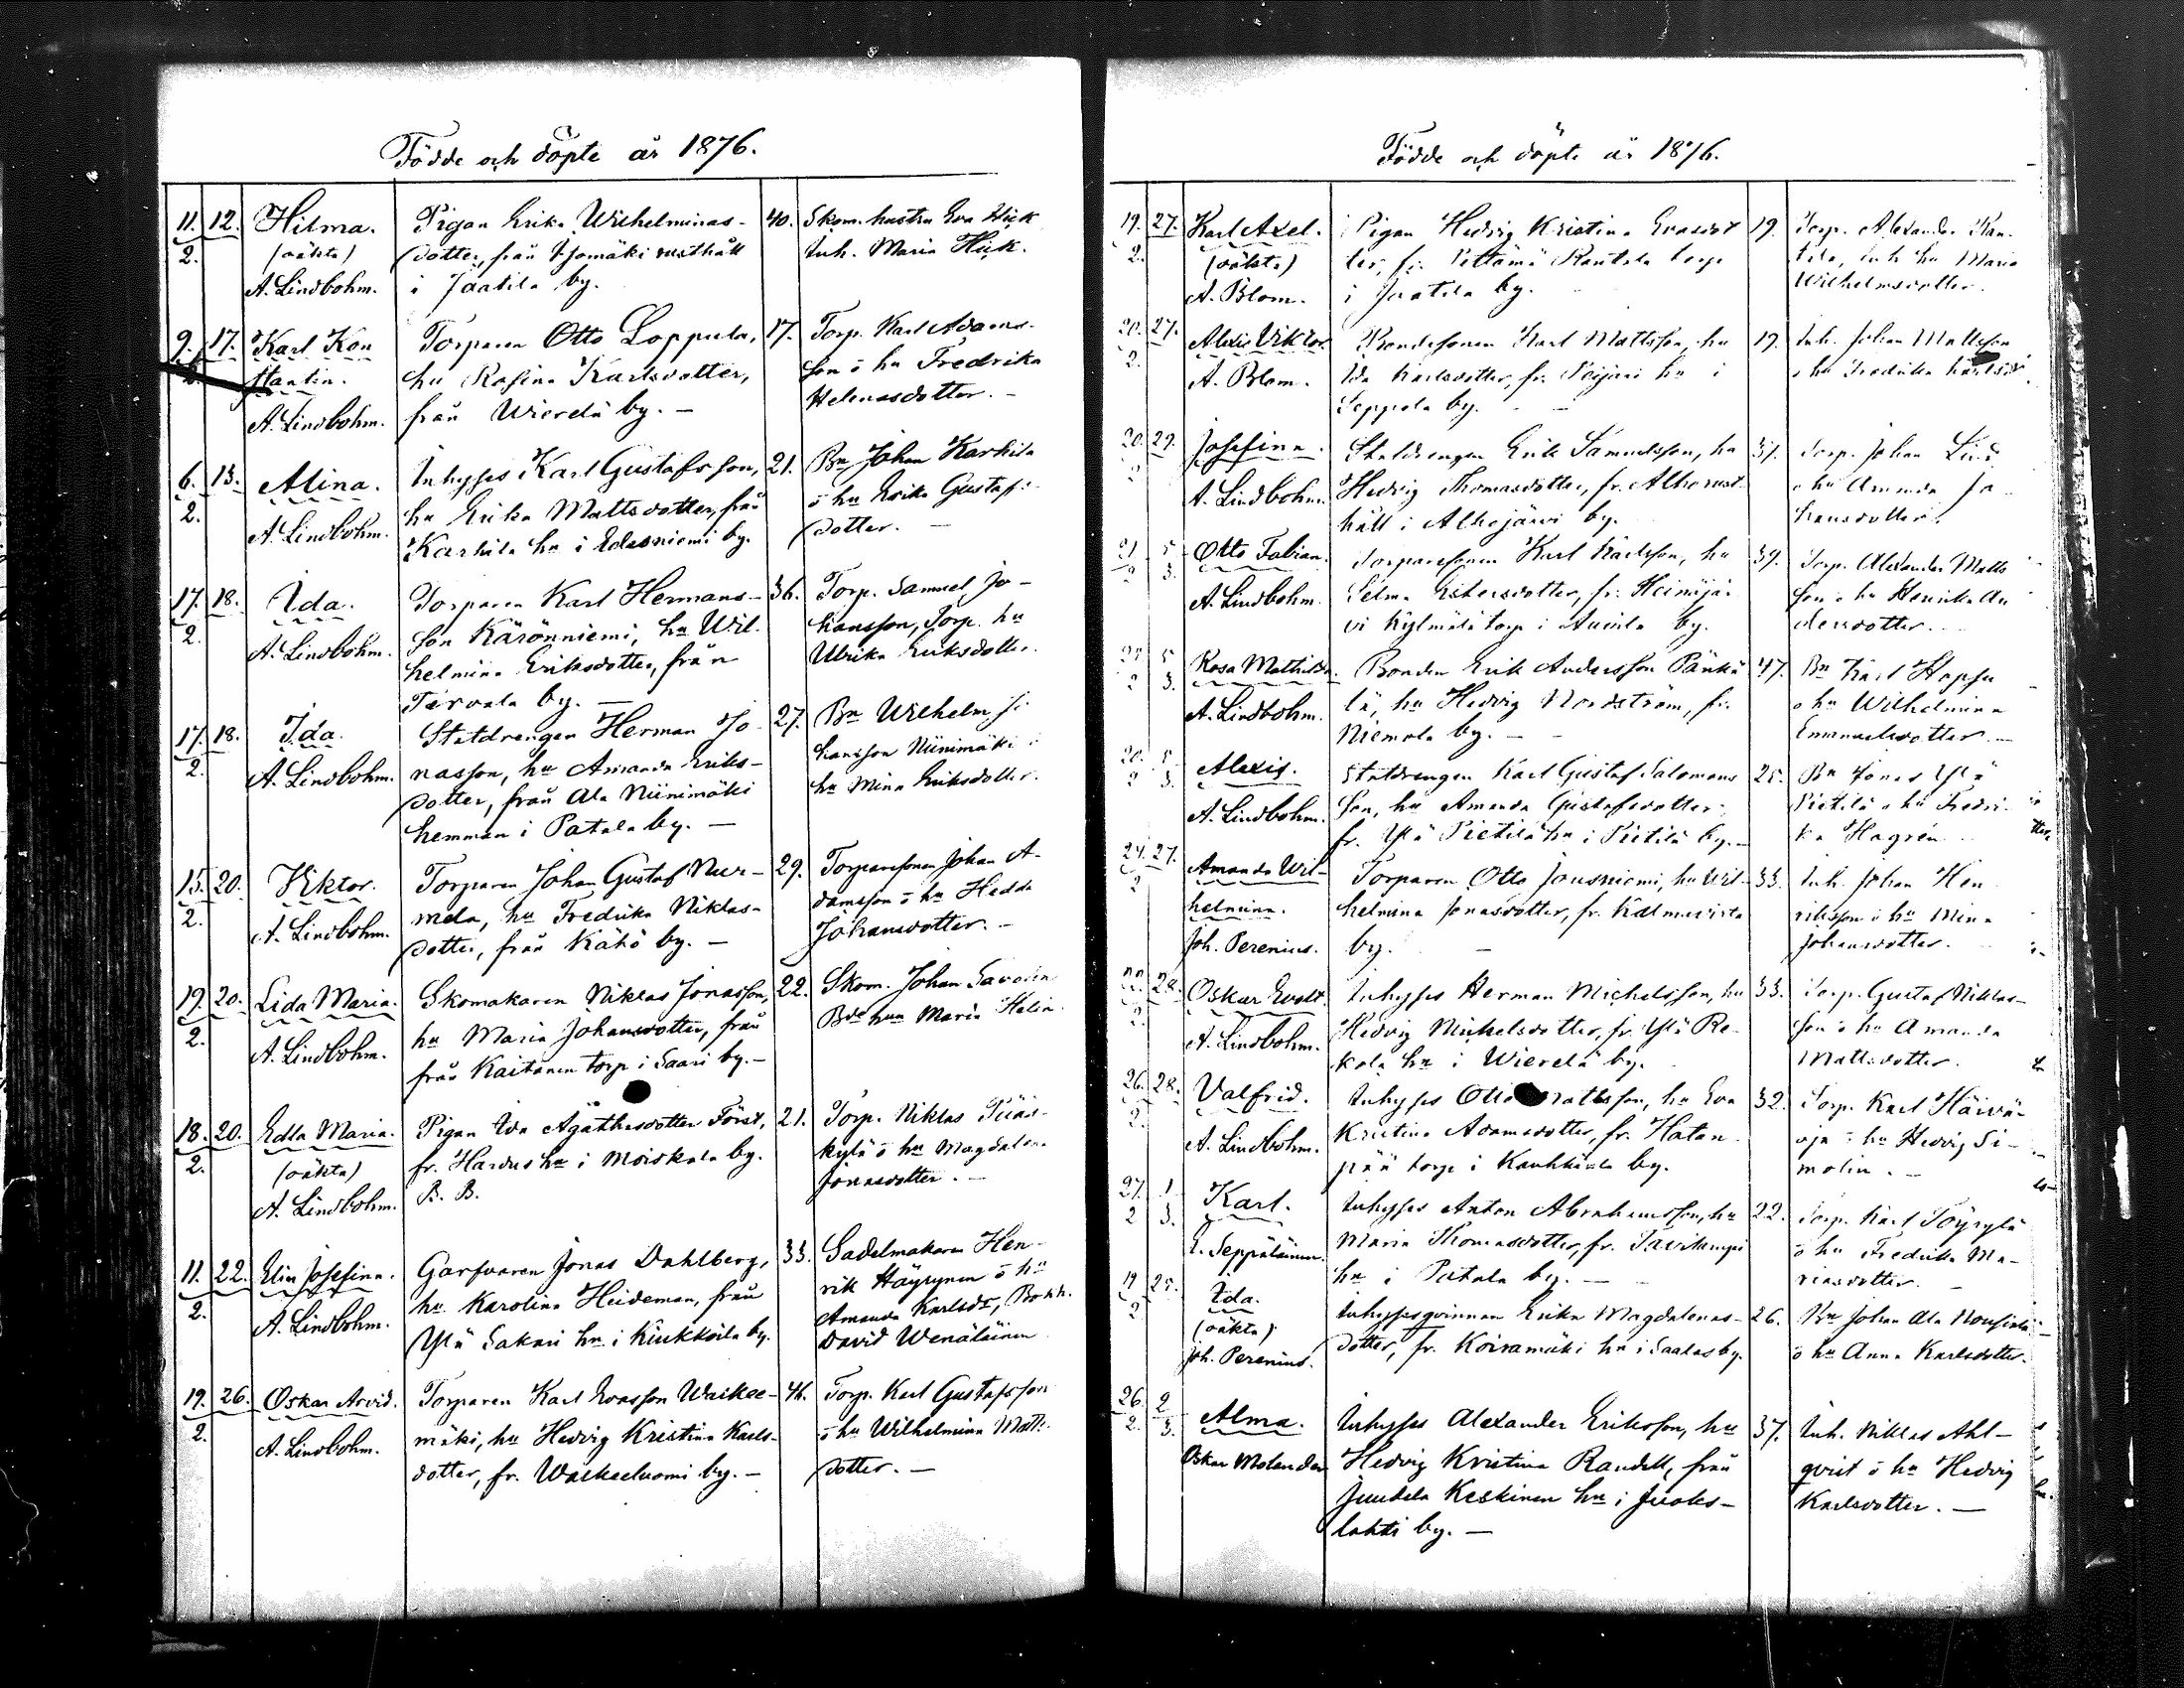 Födde och döpte år 1876.
11. 12. Hilma. Pigan Erika Wilhelminas- 40. Skom. hustru Eva Hück
2. (oäkta) dotter, från Ylomäki rusthåll Inh. Maria Hück.
A. Lindbohm. i Jaatila by.
9. 17. Karl Kon Torparen Otto Loppula, 17. Torp. Karl Adams-
2. stantin. hu Rosina Karlsdotter, son o hu Fredrika
A. Lindbohm. från Wierelä by. — Helenasdotter. —
6. 13. Alina. Inhyses Karl Gustafsson, 21. Bn Johan Karhila
2. hu Erika Mattsdotter, från o hu Erika Gustafs-
A. Lindbohm. Karhila hn i Edesniemi by. dotter. —
17. 18. Ida. Torparen Karl Hermans- 36. Torp. Samuel Jo-
2. son Kärönniemi, hu Wil- hansson, Torp. hu
A. Lindbohm. helmina Eriksdotter, från Ulrika Eriksdotter.
Tervala by. —
17. 18. Ida. Statdrengen Herman Jo- 27. Bn Wilhelm Jo-
2. nasson, hu Amanda Eriks- hansson Niinimäki o
A. Lindbohm. dotter, från Ala Niinimäki hu Mina Eriksdotter.
hemman i Patala by. —
15. 20. Viktor. Torparen Johan Gustaf Nur- 29. Torparesonen Johan A-
2. mela, hu Fredrika Niklas- damsson o hu Hedda
A. Lindbohm. dotter, från Kähö by. — Johansdotter. —
19. 20. Lida Maria. Skomakaren Niklas Jonasson, 22. Skom. Johan Savolin
2. hu Maria Johansdotter, från Bde hun Maria Helin
A. Lindbohm. från Kaitanen torp i Saari by. —
18. 20. Edla Maria. Pigan Ida Agathasdotter Förot, 21. Torp. Niklas
2. (oäkta) fr. Hardus hn i Moiskala by. kylä o hu Magdalena
A. Lindbohm. B. B. Jonasdotter. —
11. 22. Elin Josefina. Garfvaren Jonas Dahlberg, 33. Sadelmakaren Hen-
2. hu Karolina Heideman, från rik Häyrynen o hu
A. Lindbohm. Ylä Sakari hn i Kiukkoila by. Amanda Karlsdr, Bokh.
David Wenäläinen
19. 26. Oskar Arvid. Torparen Karl Evasson Waikee- 46. Torp. Karl Gustafsson
2. mäki, hu Hedvig Kristina Karls- o hu Wilhelmina Matts-
A. Lindbohm. dotter, fr. Walkealuomi by. — dotter. —
Födde och döpte år 1876.
19. 27. Karl Axel. Pigan Hedvig Kristina Evasdot 19. Torp. Alexander Ran-
2. (oäkta) ter, fr. Rantala torp tila, Inh. hu Maria
A. Blom. i Jaatila by. Wilhelmsdotter.
20. 27. Alexis Viktor. Bondesonen Karl Mattsson, hu 19. Inh. Johan Mattsson
2. A. Blom. Ida Karlsdotter, fr. Peijari hn i o hu Fredrika Karlsdr
Seppola by. —
20. 29. Josefina. Statdrengen Erik Samuelsson, hu 37. Torp. Johan Lind
2 A. Lindbohm. Hedvig Thomasdotter, fr. Alho rust- o hu Amanda Jo-
håll i Alhojärvi by. hansdotter.
21. 5 Otto Fabian. Torparesonen Karl Karlsson, hu 39. Torp. Alexander Matts
2 3. A. Lindbohm. Selma Estersdotter, fr. Heinäjär- son o hu Henrika An
vi Kylmälä torp i Auvila by. dersdotter. —
5 Rosa Mathilda. Bonden Erik Andersson Pänkä 47. Bn Karl Hapsu
2 3. A. Lindbohm. lä, hu Hedvig Nordström, fr. o hu Wilhelmina
Niemola by. — Emanuelsdotter. —
20. 5. Alexis. Statdrengen Karl Gustaf Salomons 25. Bn Jonas Ylä
2 3. A. Lindbohm. son, hu Amanda Gustafsdotter, Pietilä o hu Fredri-
fr. Ylä Pietilä hn i Pietilä by. — ka Hagrén
24. 27. Amanda Wil- Torparen Otto Jousniemi, hu Wil- 33. Inh. Johan Hen
2 helmina. helmina Jonasdotter, fr. Kalmuvirta riksson o hu Mina
Joh. Perenius. by. — Johansdotter.
22. 28. Oskar Evalt. Inhyses Herman Michelsson, hu 33. Torp. Gustaf Niklas-
2. A. Lindbohm. Hedvig Michelsdotter, fr. Ylä Re- son o hu Amanda
kola hn i Wierelä by. Mattsdotter.
26. 28. Valfrid. Inhyses Otto Mattsson, hu Eva 32. Torp. Karl Häivä-
2. A. Lindbohm. Kristina Adamsdotter, fr. Hatan- oja o hu Hedvig Si-
pää torp i Kauhkiala by. molin. —
27. 1 Karl. Inhyses Anton Abrahamsson, hu 22. Torp. Karl Töyrylä
2 3. E. Seppäläinen. Maria Thomasdotter, fr. Savilampi o hu Fredrika Ma-
hn i Patala by. — riasdotter. —
19 25. Ida. Inhysesqvinnan Erika Magdalenas- 26. Bn Johan Ala Nousiala
2 (oäkta) dotter, fr. Koivamäki hn i Saalas by. o hu Anna Karlsdotter.
Joh. Perenius.
26. 2 Alma. Inhyses Alexander Eriksson, hu 37. Inh. Niklas Ahl-
2. 3. Oskar Molander Hedvig Kristina Randell, från qvist o hu Hedvig
Juutila Keskinen hn i Jiuoks- Karlsdotter. —
lahti by. —